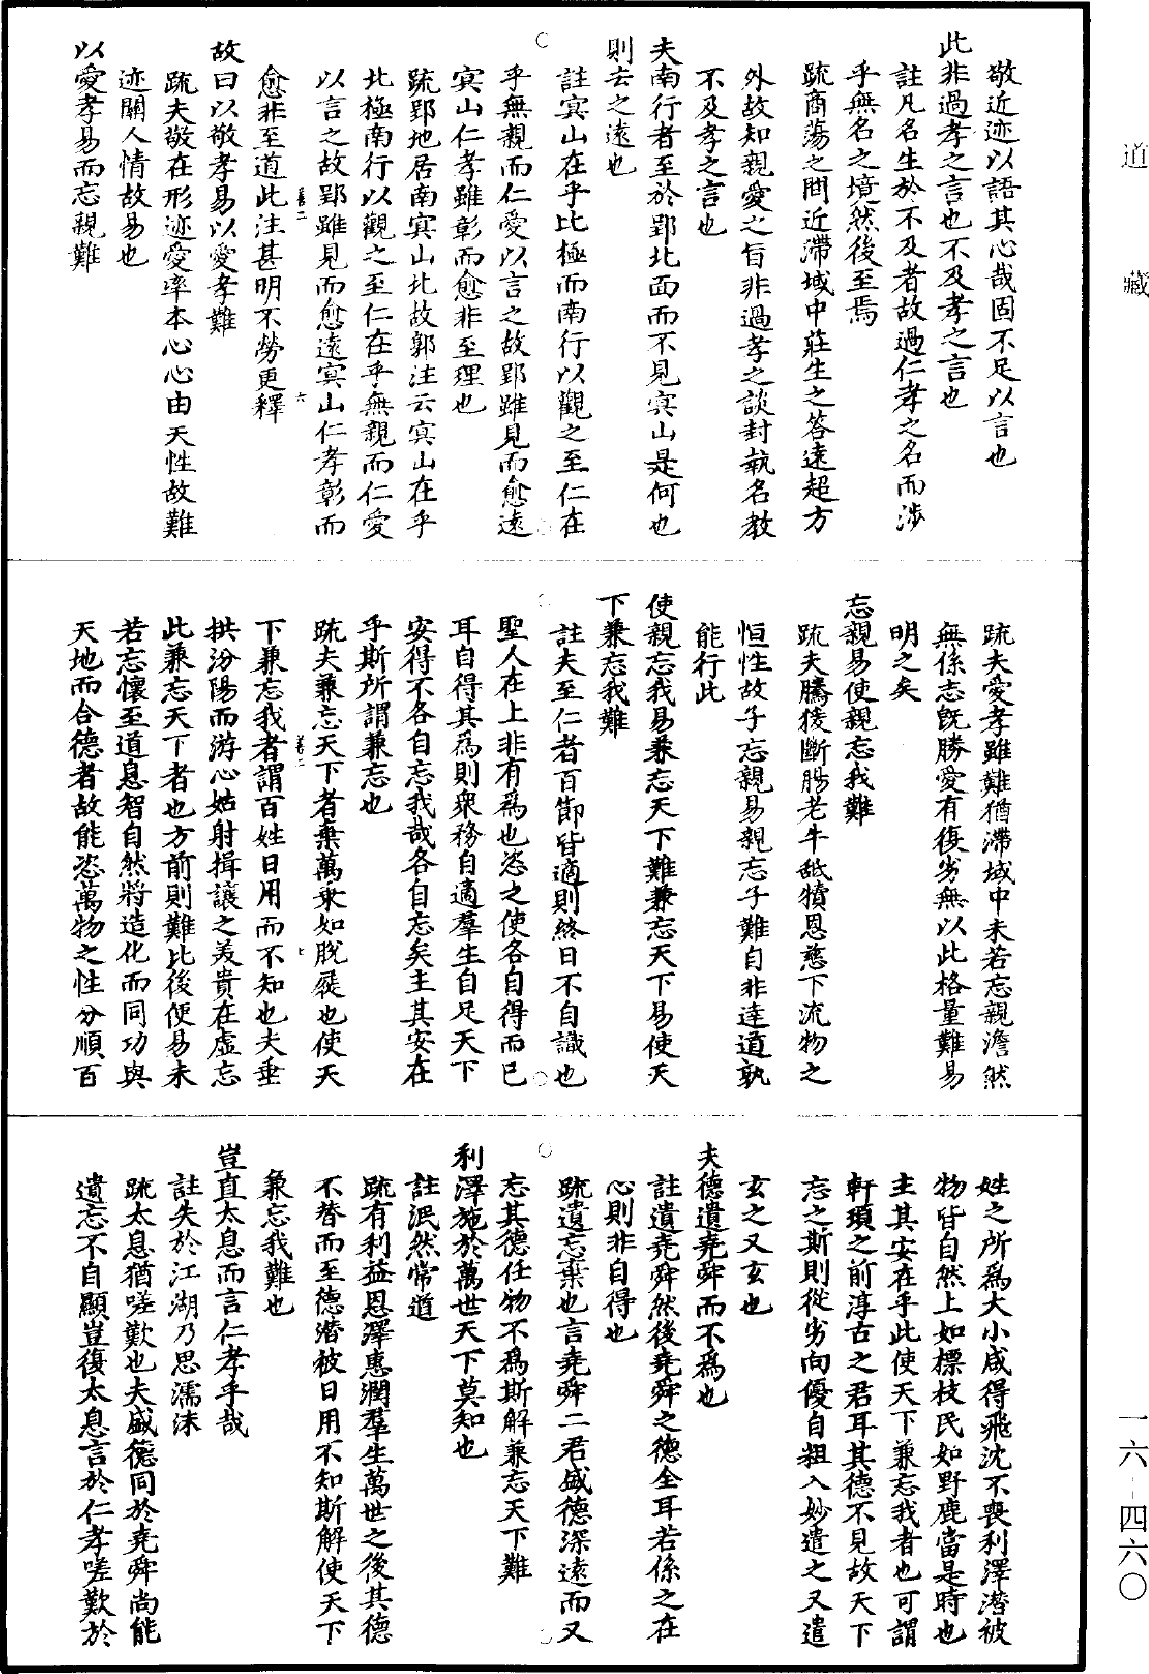 敬近迹以語其心哉固不足以言也
此非過孝之言也不及孝之言也
註凡名生於不及者故過仁孝之名而涉
乎無名之境然後至焉
疏商蕩之問近滯域中莊生之答遠超方
外故知親愛之旨非過孝之談封執名教
不及孝之言也
夫南行者至於郢北面而不見冥山是何也
則去之遠也
註冥山在乎北極而南行以觀之至仁在
乎無親而仁愛以言之故郢雖見而愈遠
冥山仁孝雖彰而愈非至理也
疏郢地居南冥山北故郭注云冥山在乎
北極南行以觀之至仁在乎無親而仁愛
以言之故郢雖見而愈遠冥山仁孝彰而
愈非至道此注甚明不勞更釋
故曰以敬孝易以愛孝難
疏夫敬在形迹愛率本心心由天性故難
迹關人情故易也
以愛孝易而忘親難
疏夫愛孝雖難猶滯域中未若忘親澹然
無係忘既勝愛有優劣無以此格量難易
明之矣
忘親易使親忘我難
疏夫騰猨斷腸老牛舐犢恩慈下流物之
恒性故子忘親易親忘子難自非達道孰
能行此
使親忘我易兼忘天下難兼忘天下易使天
下兼忘我難
註夫至仁者百節皆適則終日不自識也
聖人在上非有為也恣之使各自得而已
耳自得其為則衆務自適羣生自足天下
安得不各自忘我哉各自忘矣主其安在
乎斯所謂兼忘也
疏夫兼忘天下者棄萬乘如脫屣也使天
下兼忘我者謂百姓日用而不知也夫垂
拱汾陽而游心姑射揖讓之美貴在虛忘
此兼忘天下者也方前則難比後便易未
若忘懷至道息智自然將造化而同功與
天地而合德者故能恣萬物之性分順百
姓之所為大小咸得飛沈不喪利澤潛被
物皆自然上如標枝民如野鹿當是時也
主其安在乎此使天下兼忘我者也可謂
軒頊之前淳古之君耳其德不見故天下
忘之斯則從劣向優自粗入妙遣之又遣
玄之又玄也
夫德遺堯舜而不為也
註遺堯舜然後堯舜之德全耳若係之在
心則非自得也
疏遺忘棄也言堯舜二君盛德深遠而又
忘其德任物不為斯解兼忘天下難
利澤施於萬世天下莫知也
註泯然常道
疏有利益恩澤惠潤羣生萬世之後其德
不替而至德潛被日用不知斯解使天下
兼忘我難也
豈直太息而言仁孝乎哉
註失於江湖乃思濡沫
疏太息猶嗟歎也夫盛德同於堯舜尚能
遺忘不自顯豈復太息言於仁孝嗟歎於
道藏
一六-四六〇